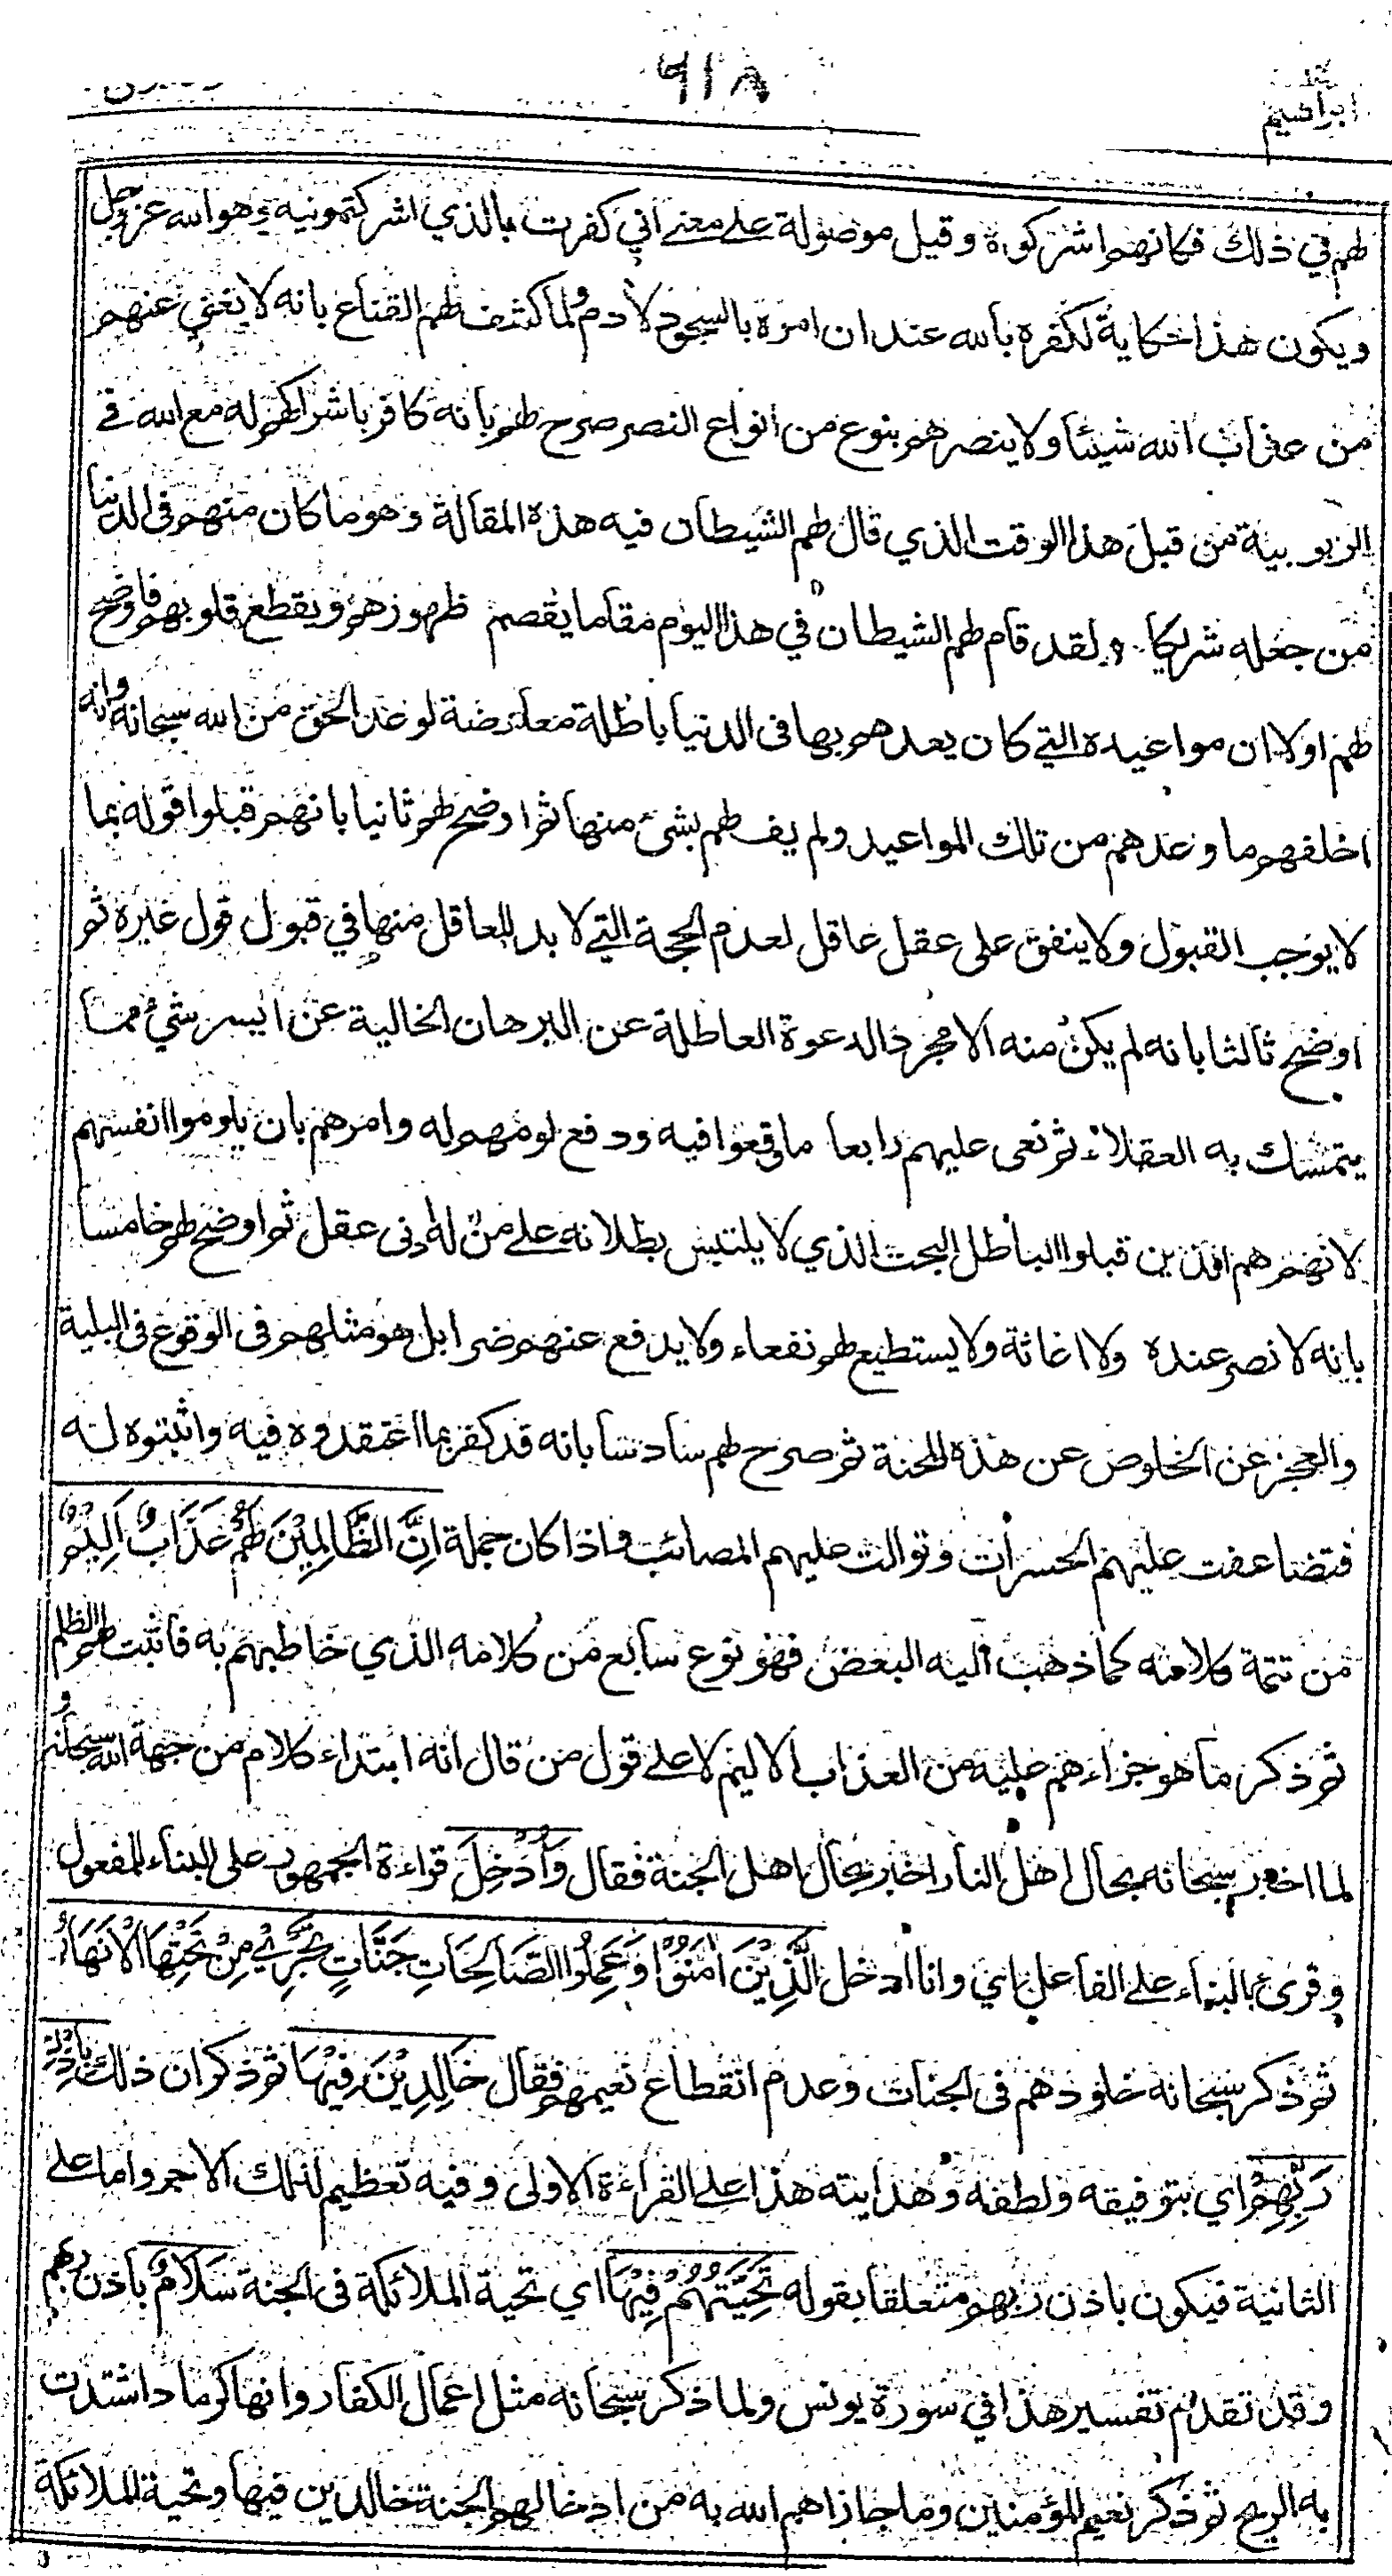 ٦١٨
ابراهيم
لهم في ذلك فكانهم اشركوه وقيل موصولة على معنى اني كفرت بالذي اشركتمونيه وهو الله عز وجل
ويكون هذا حكاية لكفره بالله عند ان امره بالسجود لادم ولما كشف لهم القناع بانه لا يغني عنهم
من عذاب الله شيئا ولا ينصرهم بنوع من انواع النصر صرح لهم بانه كافر باشراكهم له مع الله في
الربوبية من قبل هذا الوقت الذي قال لهم الشيطان فيه هذه المقالة وهو ما كان منهم في الدنيا
من جعله شريكا ولقد قام لهم الشيطان في هذا اليوم مقاما يقصم ظهورهم ويقطع قلوبهم فاوضح
لهم اولا ان مواعيده التي كان يعدهم بها في الدنيا باطلة معارضة لوعد الحق من الله سبحانه وانه
اخلفهم ما وعدهم من تلك المواعيد ولم يف لهم بشئ منها ثم اوضح لهم ثانيا بانهم قبلوا قوله بما
لا يوجب القبول ولا ينفق على عقل عاقل لعدم الحجة التي لا بد للعاقل منها في قبول قول غيره ثم
اوضح ثالثا بانه لم يكن منه الا مجرد الدعوة العاطلة عن البرهان الخالية عن ايسر شيء مما
يتمسك به العقلاء ثم نعى عليهم رابعا ما وقعوا فيه ودفع لومهم له وامرهم بان يلوموا انفسهم
لانهم هم الذين قبلوا الباطل البحت الذي لا يلتبس بطلانه على من له ادنى عقل ثم اوضح لهم خامسا
بانه لا نصر عنده ولا اغاثة ولا يستطيع لهم نفعاء ولا يدفع عنهم ضرا بل هو مثلهم في الوقوع في البلية
والعجز عن الخلوص عن هذه المحنة ثم صرح لهم سادسا بانه قد كفر بما اعتقدوه فيه واثبتوه له
فتضاعفت عليهم الحسرات وتوالت عليهم المصائب واذا كان جملة اِنَّ الظَّالِمِيْنَ لَهُمْ عَذَابٌ اَلِيْمٌ
من تتمة كلامه كما ذهب اليه البعض فهو نوع سابع من كلامه الذي خاطبهم به فاثبت لهم الظلم
ثم ذكر ما هو جزاءهم عليه من العذاب الاليم لا على قول من قال انه ابتداء كلام من جهة الله سبحانه و
لما اخبر سبحانه بحال اهل النار اخبر بحال اهل الجنة فقال وَاُدْخِلَ قراءة الجمهور على البناء للمفعول
وقرئ بالبناء على الفاعل اي وانا ادخل الَّذِيْنَ اٰمَنُوْا وَعَمِلُوا الصَّالِحَاتِ جَنَّاتٍ تَجْرِيْ مِنْ تَحْتِهَا الْاَنْهَارُ
ثم ذكر سبحانه خلودهم في الجنات وعدم انقطاع نعيمهم فقال خَالِدِيْنَ فِيْهَا ثم ذكر ان ذلك بِاِذْنِ
رَبِّهِمْ اي بتوفيقه ولطفه وهدايته هذا على القراءة الاولى وفيه تعظيم لذلك الاجر واما على
الثانية فيكون باذن ربهم متعلقا بقوله تَحِيَّتُهُمْ فِيْهَا اي تحية الملائكة في الجنة سَلَامٌ باذن ربهم
وقد تقدم تفسير هذا في سورة يونس ولما ذكر سبحانه مثل اعمال الكفار وانها كرماد اشتدت
به الريح ثم ذكر نعيم المؤمنين وما جازاهم الله به من ادخالهم الجنة خالدين فيها وتحية الملائكة